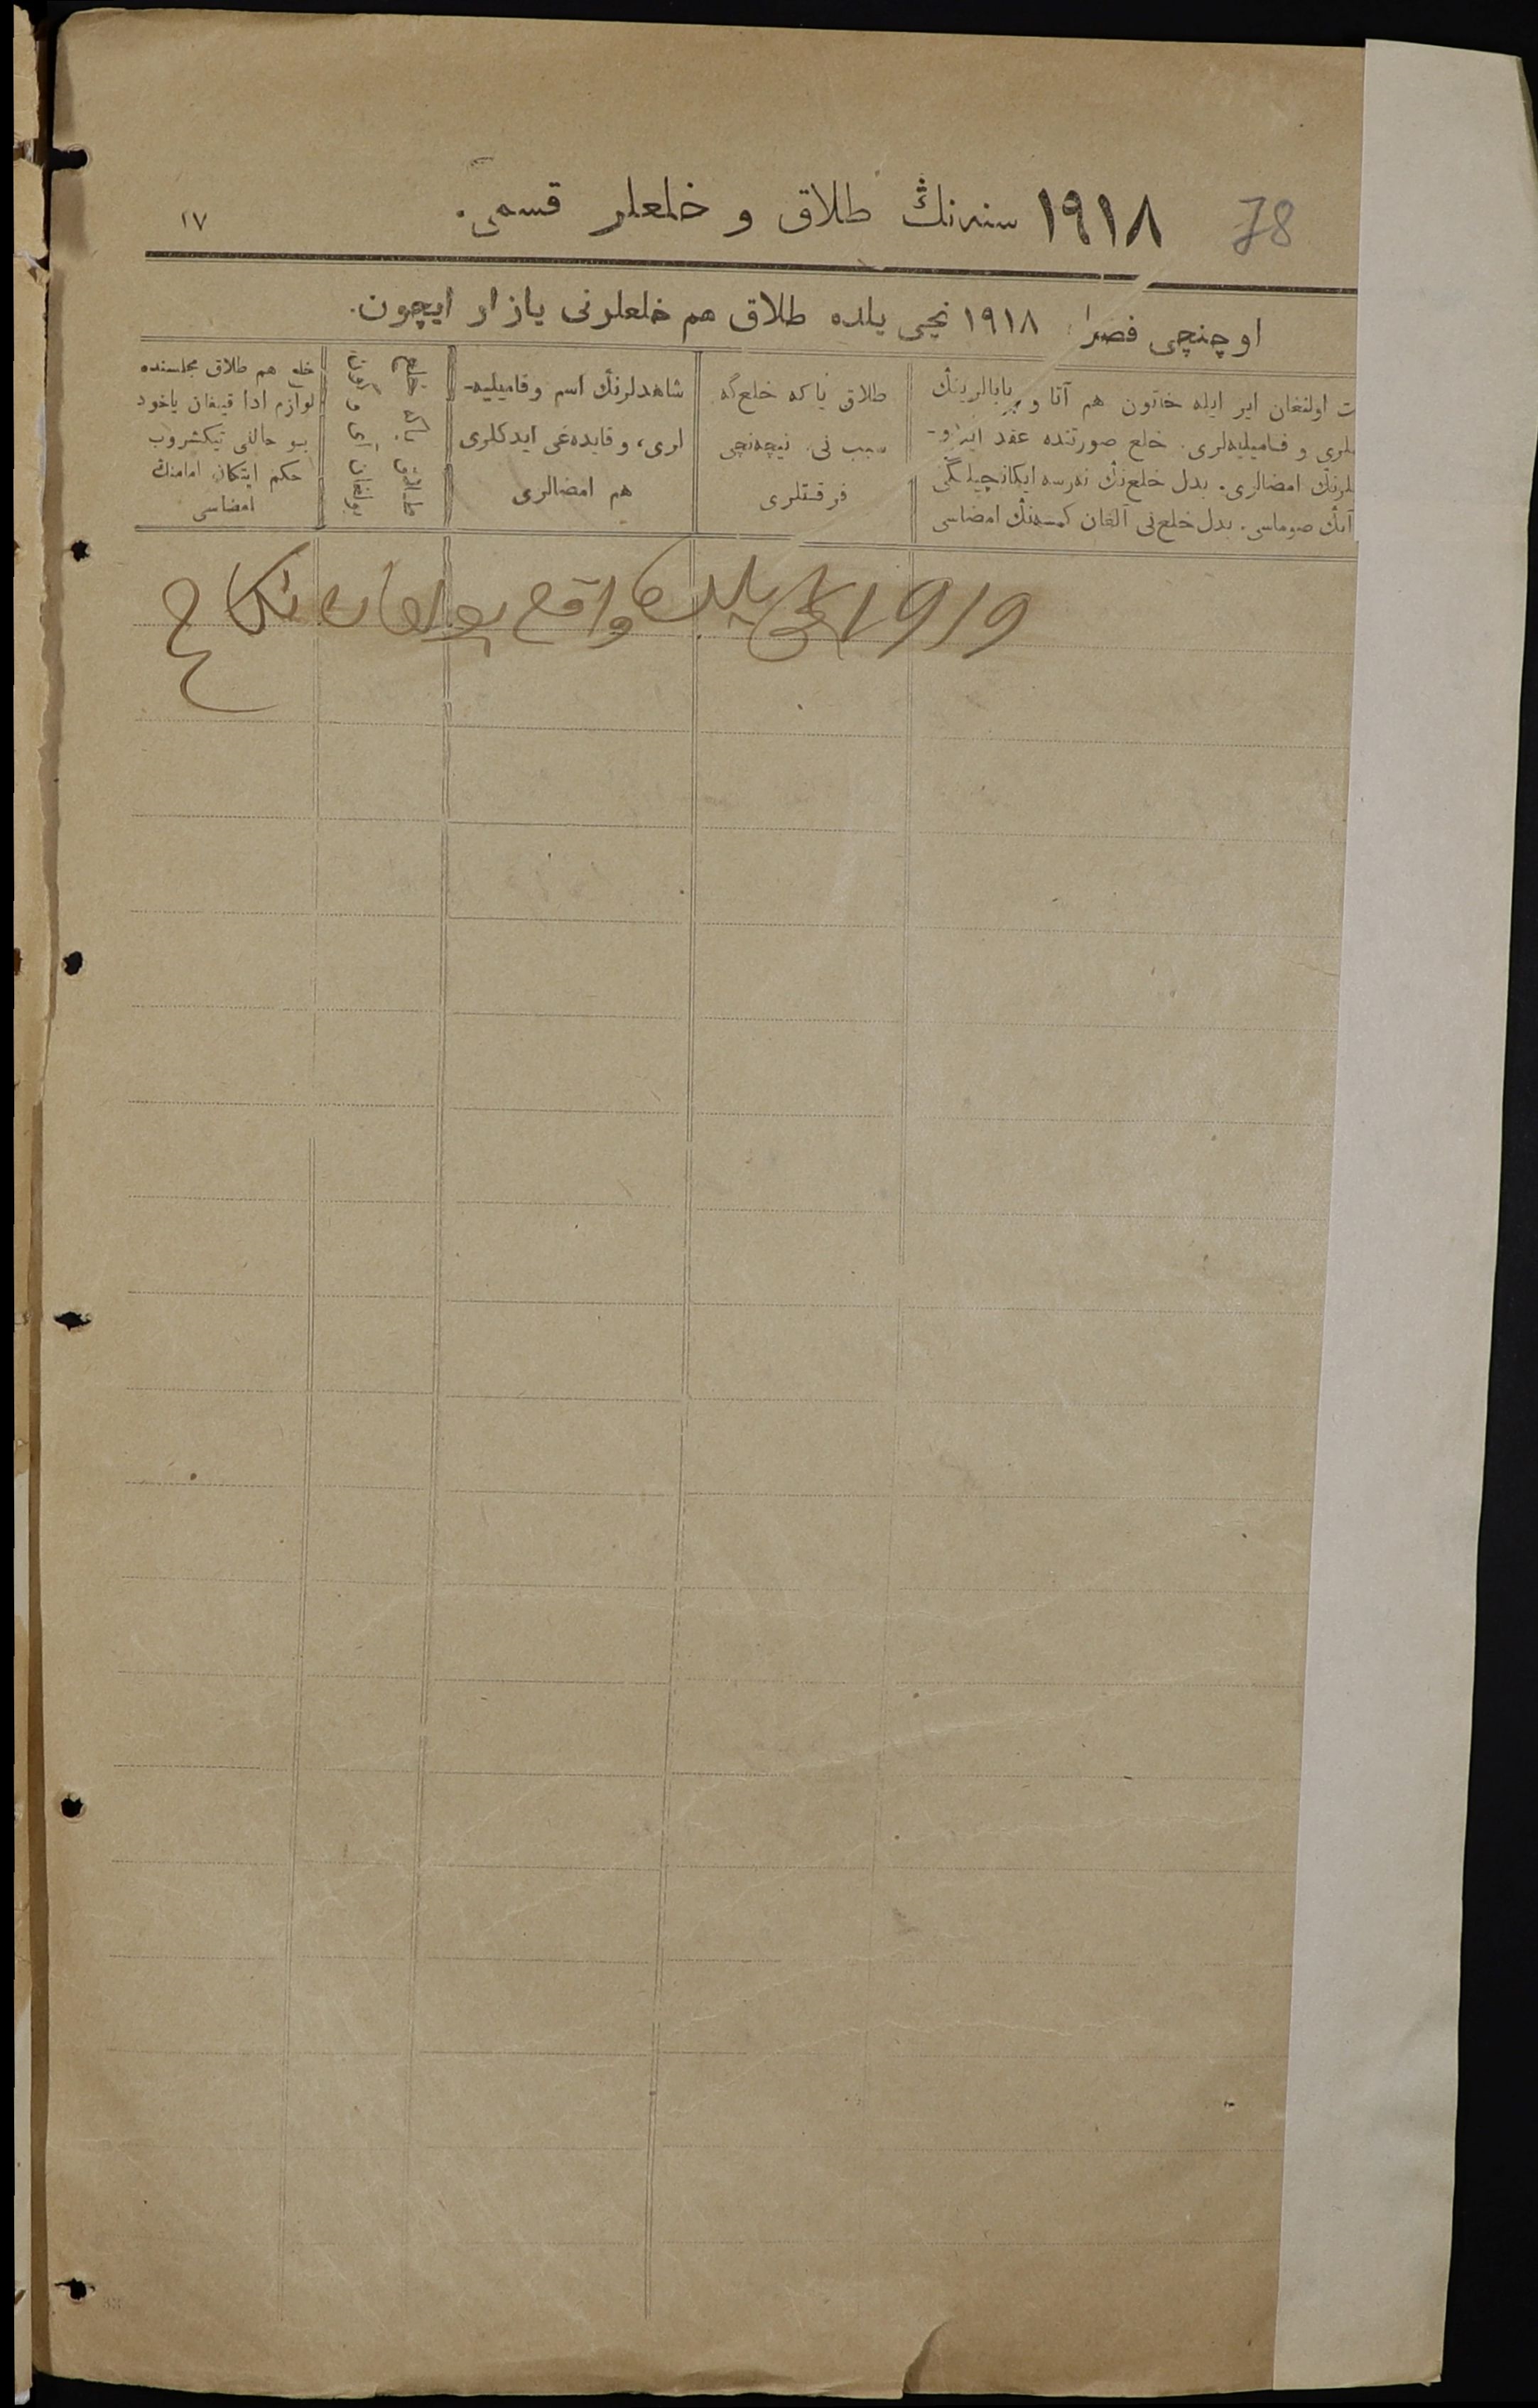 78
١٩١٨ سنه‌نڭ طلاق و خلعلر قسمی.
١٧
اوچنچی فصل ١٩١٨ نچی یلده طلاق هم خلعلرنی یازار ایچون.
اولنغان ایر ایله خاتون هم آتا و بابالرینڭ
و فامیلیه‌لری. خلع صورتنده عقد
امضالری. بدل خلع‌نڭ نه‌رسه ایکانچیلگی
آنڭ صوماسی. بدل خلع‌نی آلغان کمسه‌نڭ امضاسی
طلاق یا که خلع‌گه
سبب نی. نیچه‌نچی
فرقتلری
شاهدلرنڭ اسم و فامیلیه-
لری، و قایده‌غی ایدکلری
هم امضالری
طلاق یا که خلع
بولغان آی و کون
خلع هم طلاق مجلسنده
لوازم ادا قیلغان یاخود
بو حالنی تیکشروب
حکم ایتکان امامنڭ
امضاسی
1919 نچی یلده واقع بولغان نکاح